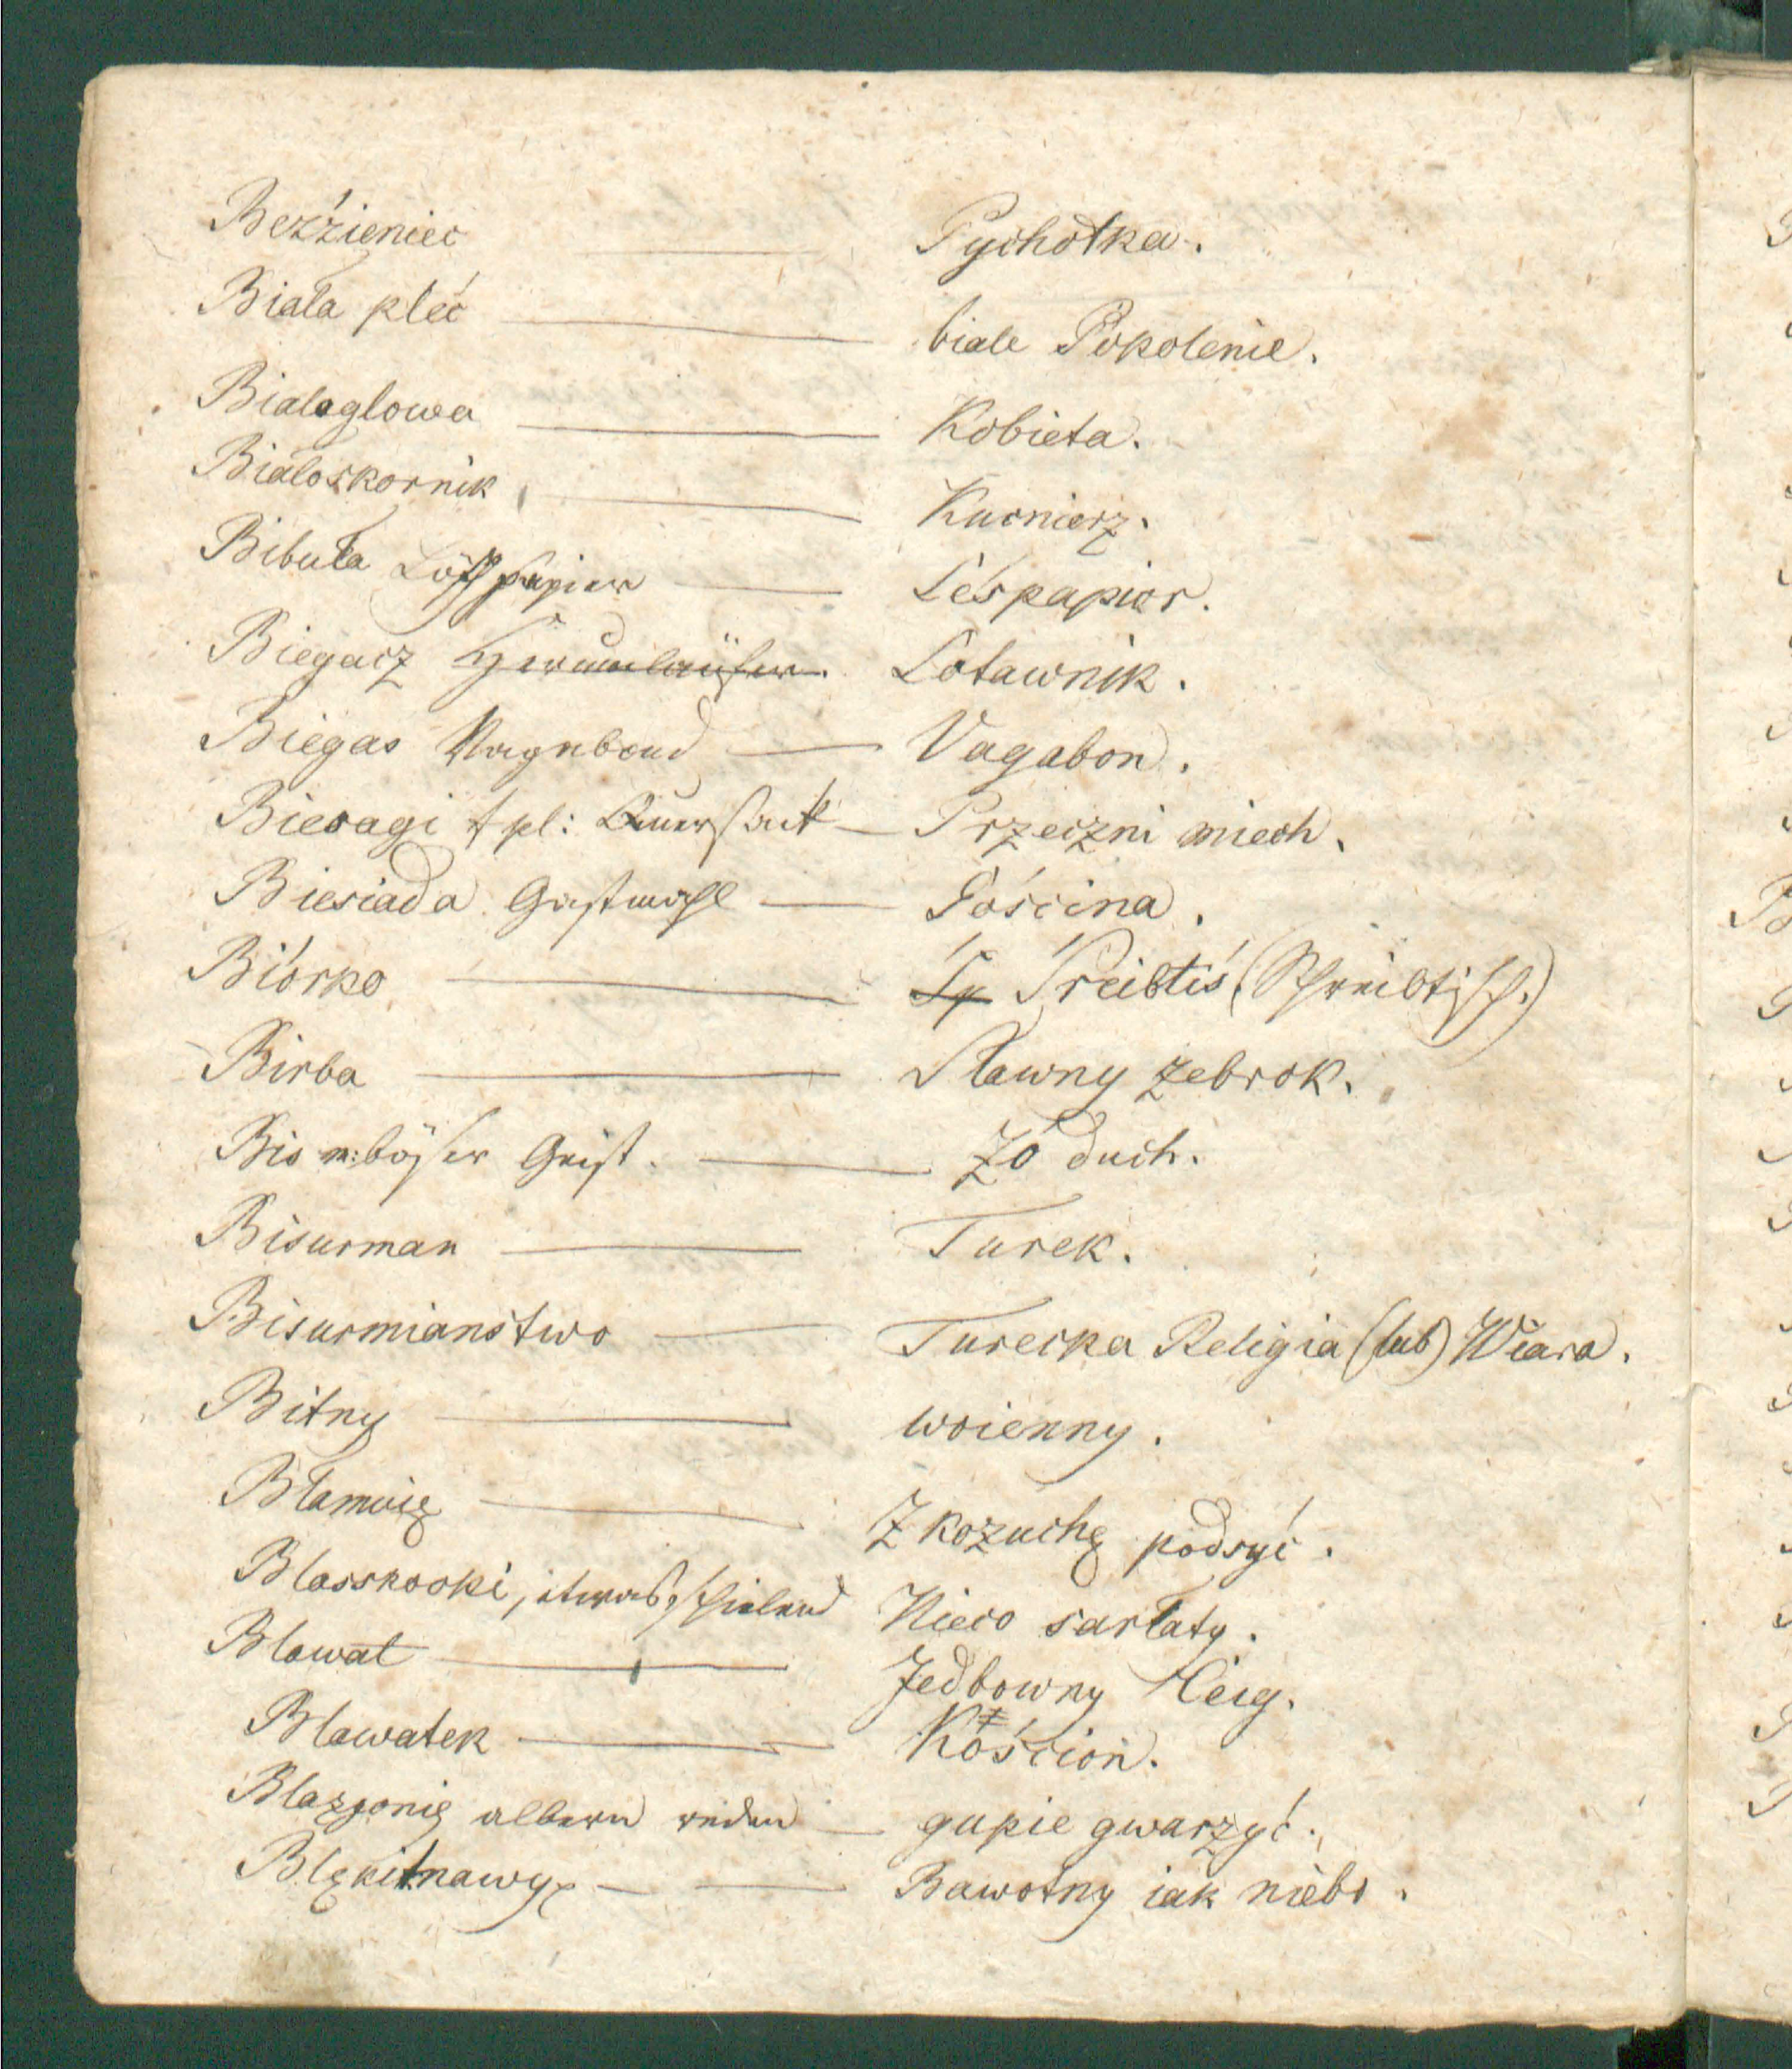 Bezżieniec — Pychotka.
Biała płeć — biale Pokolenie.
Bialaglowa — Kobieta.
Bialoskornik — Kucnierz.
Bibuła Löschpapier — Leśpapier.
Biegacz Herumläufer. Lotawnik.
Biegas Vagabond — Vagabon.
Biesagi f pl: Quersack — Przeczni miech.
Biesiada Gastmahl — Gościna.
Biórko — Śreibtiś (Schreibtisch.)
Birba — Sławny zebrok.
Bis m: böser Geist. — Zo duch.
Bisurman — Turek.
Bisurmianstwo — Turecka Religia (lub) Wiara.
Bitny — woienny.
Błamuię — Z kozuchę podsyć.
Blasskooki, etwas schielend Nieco sarłaty.
Blawat — Jedbowny
Blawatek — Kościon.
Blazgonię albern reden — gupie gwarzyć.
Blękitnawy — Bawotny iak niebo.